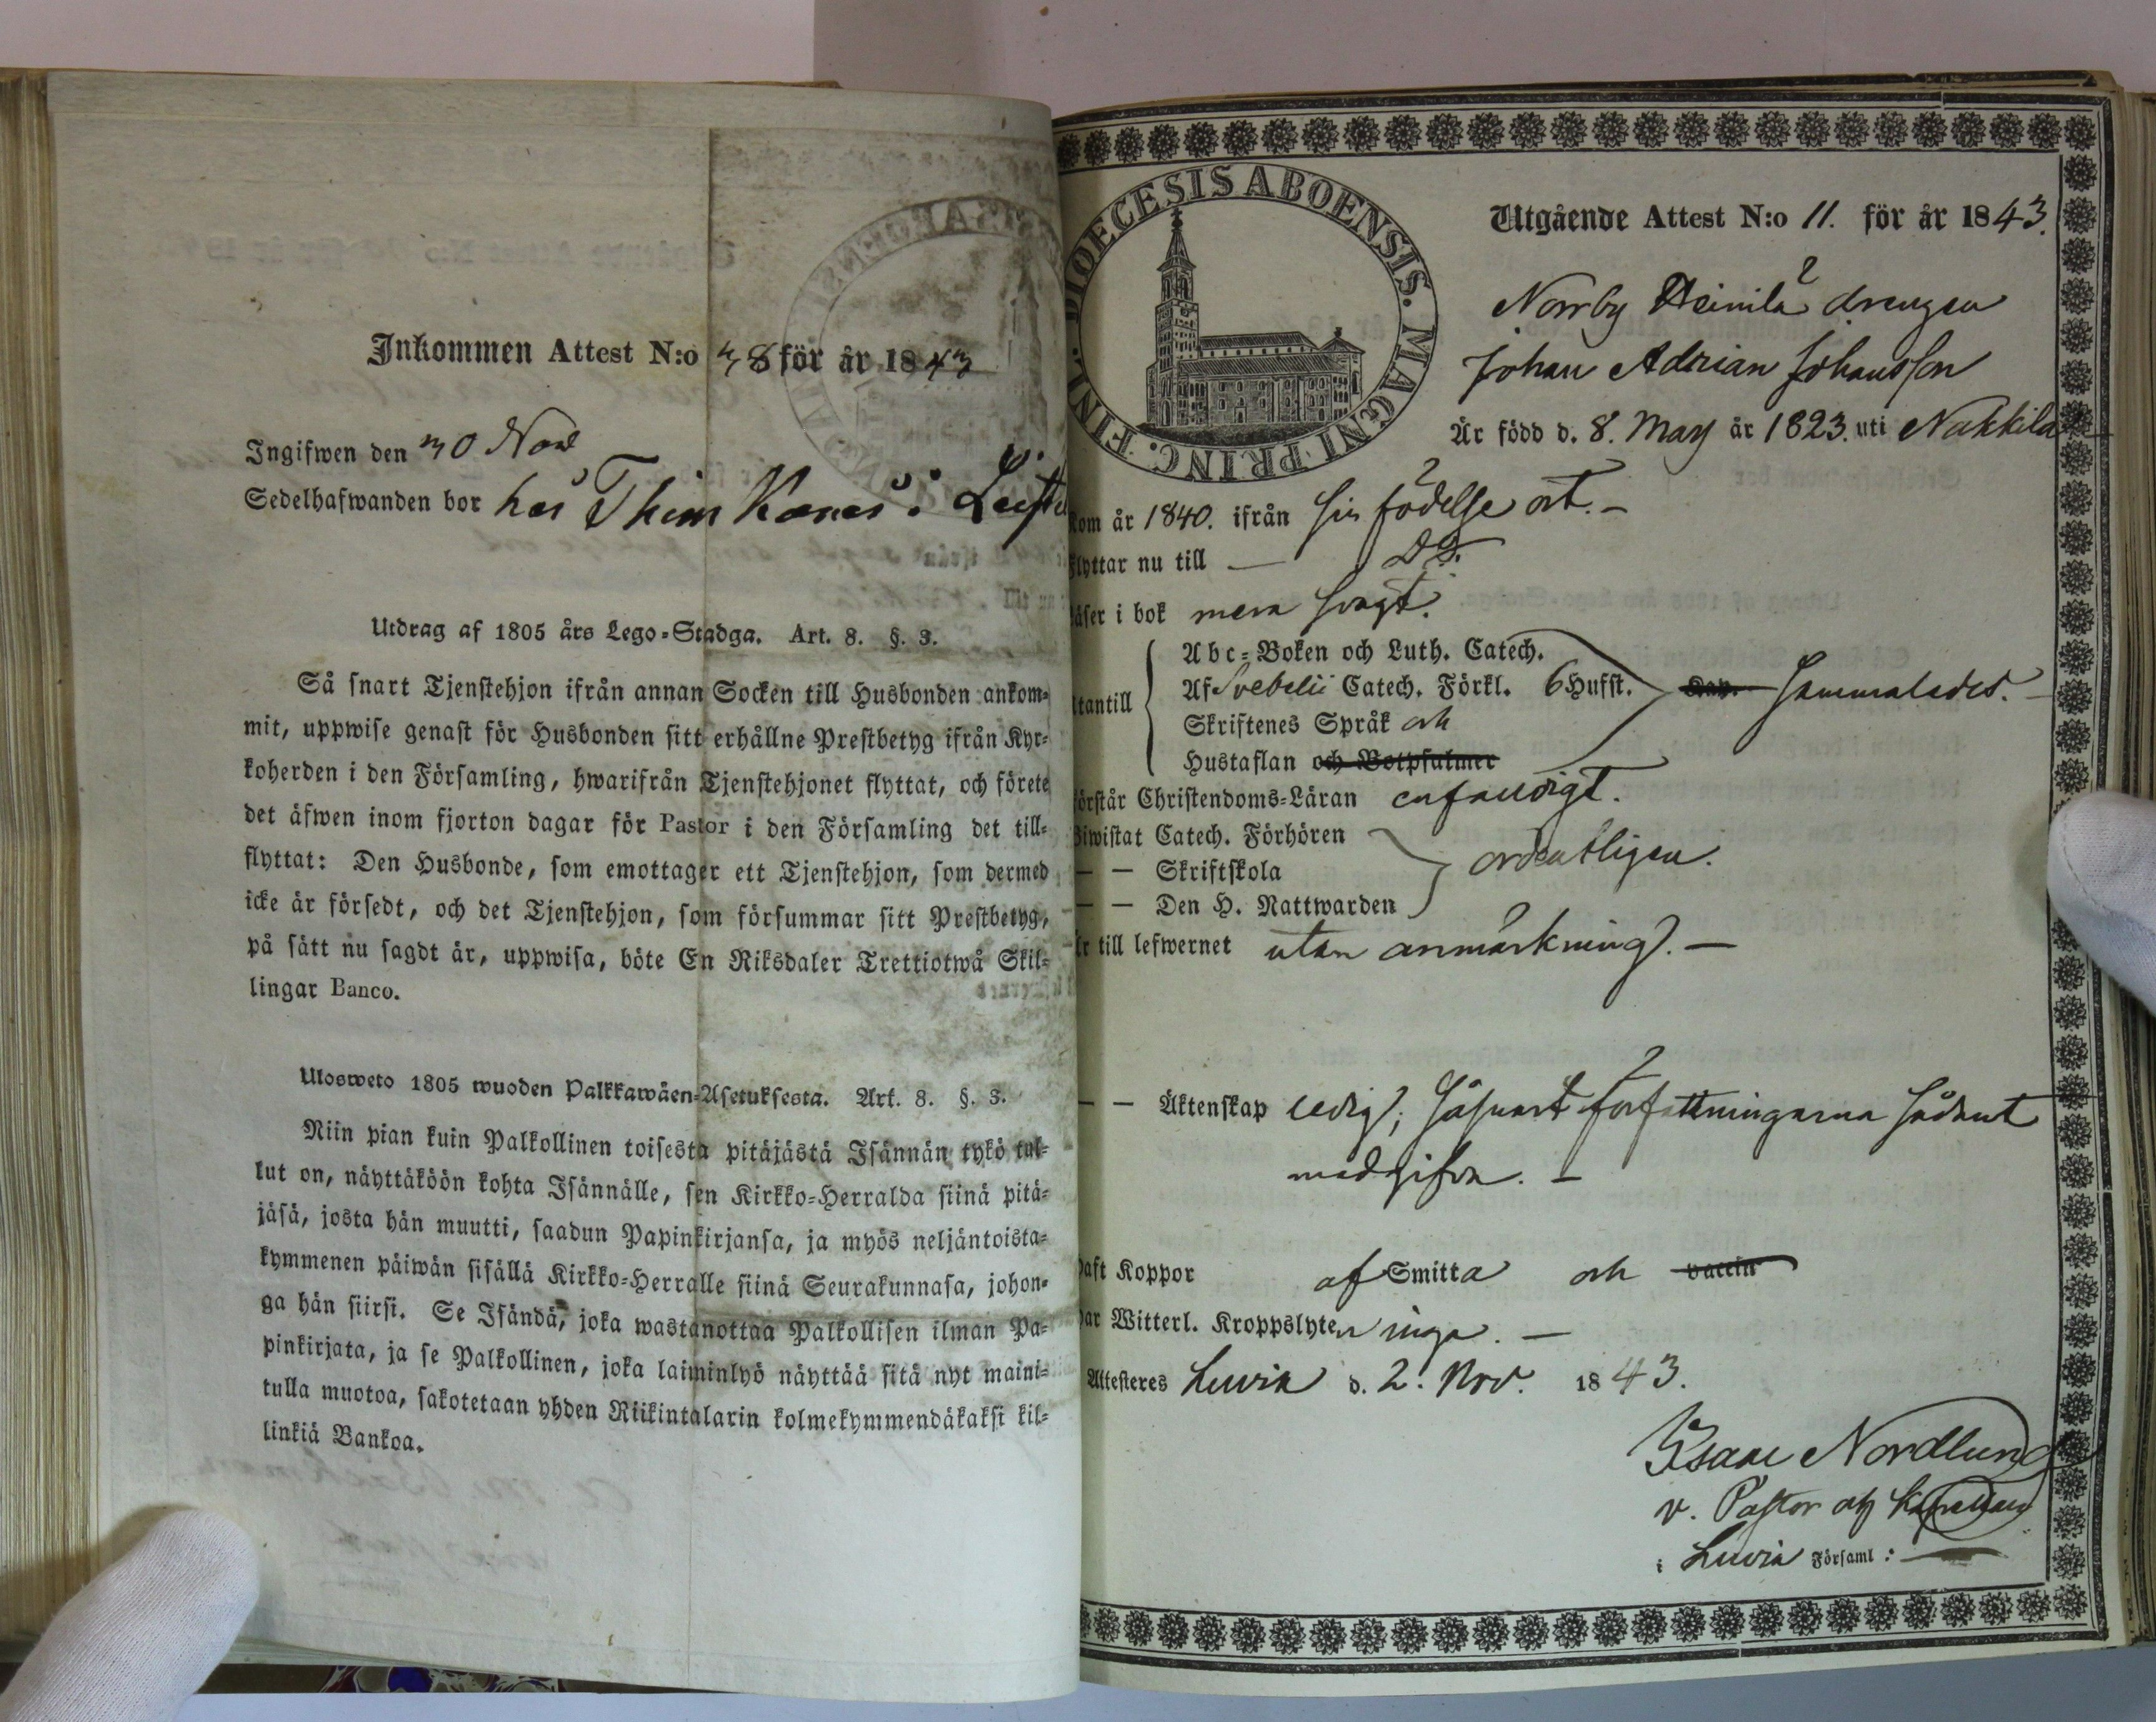 Inkommen Attest N:o 38 för år 1843
Ingifwen den 30 Nov
Sedelhafwanden bor hos i
Utdrag af 1805 års Lego=Stadga. Art. 8. §. 3.
Så snart Tjenstehjon ifrån annan Socken till Husbonden ankom=
mit, uppwise genast för Husbonden sitt erhållne Prestbetyg ifrån Kyr=
koherden i den Församling, hwarifrån Tjenstehjonet flyttat, och förete
det äfwen inom fjorton dagar för Pastor i den Församling det till=
flyttat: Den Husbonde, som emottager ett Tjenstehjon, som dermed
icke är försedt, och det Tjenstehjon, som försummar sitt Prestbetyg,
på sätt nu sagdt är, uppwisa, böte En Riksdaler Trettiotwå Skil=
lingar Banco.
Ulosweto 1805 wuoden Palkkawäen=Asetuksesta. Art. 8. §. 3.
Niin pian kuin Palkollinen toisesta pitäjästä Isännän tykö tul=
lut on, näyttäköön kohta Isännälle, sen Kirkko=Herralda siinä pitä=
jäsä, josta hän muutti, saadun Papinkirjansa, ja myös neljäntoista=
kymmenen päiwän sisällä Kirkko=Herralle siinä Seurakunnasa, johon=
ga hän siirsi. Se Isändä, joka wastanottaa Palkollisen ilman Pa=
pinkirjata, ja se Palkollinen, joka laiminlyö näyttää sitä nyt maini=
tulla muotoa, sakotetaan yhden Riikintalarin kolmekymmendäkaksi kil=
linkiä Bankoa.
DIOECESIS ABOENSIS. MAGNI PRINC. FINL.
Utgående Attest N:o 11. för år 1843.
Norrby Heinilä drengen
Johan Adrian Johansson
Är född d. 8. May år 1823. uti Nakkila
kom år 1840. ifrån sin födelse ort. –
flyttar nu till — Do.
läser i bok mera svagt.
Abc=Boken och Luth. Catech.
Af Svebelii Catech. Förkl. 6 Husst. Kap. sammalades. –
utantill
Skriftenes Språk och
Hustaflan och Botpsalmer
förstår Christendoms=Läran enfaldigt.
Biwistat Catech. Förhören
— — Skriftskola ordentligen.
— — Den H. Nattwarden
Är till lefwernet utan anmärkning. —
— — Äktenskap ledig; såsnart författningarna sådant
medgifva. –
haft Koppor af Smitta och vaccin
har Witterl. Kroppslyten inga. —
Attesteres Luvia d. 2. Nov. 1843.
Isaac Nordlund
v. Pastor och Kapellan
i Luvia Församl: —